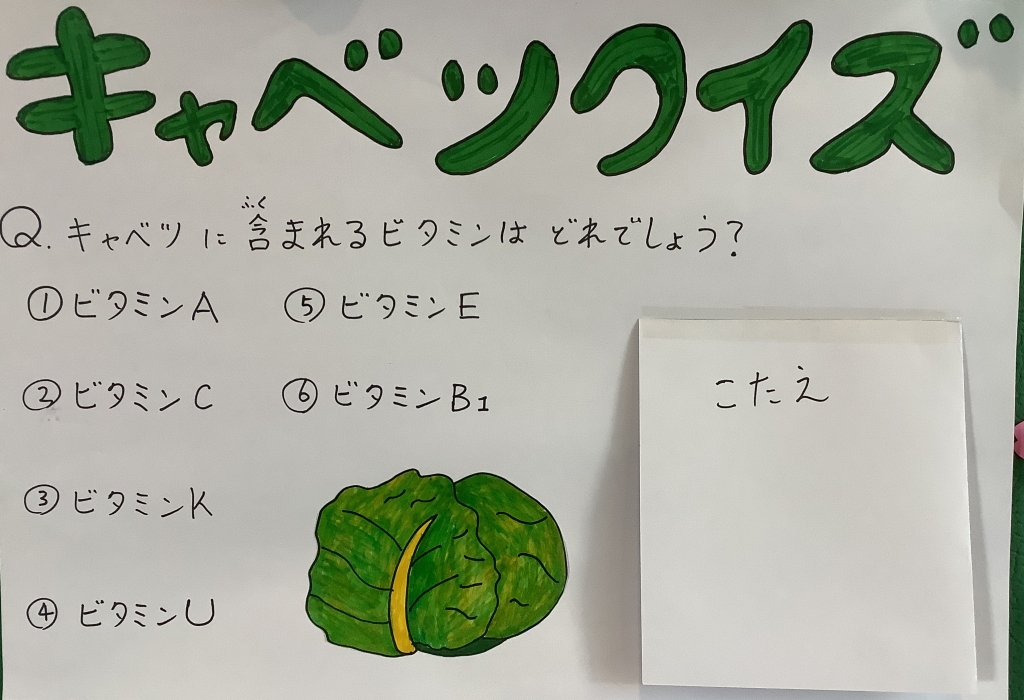 キャベツクイズ
Q. キャベツに含まれるビタミンはどれでしょう?
ふく
① ビタミンA
② ビタミンC
③ ビタミンK
④ ビタミンU
⑤ ビタミンE
⑥ ビタミンB1
こたえ